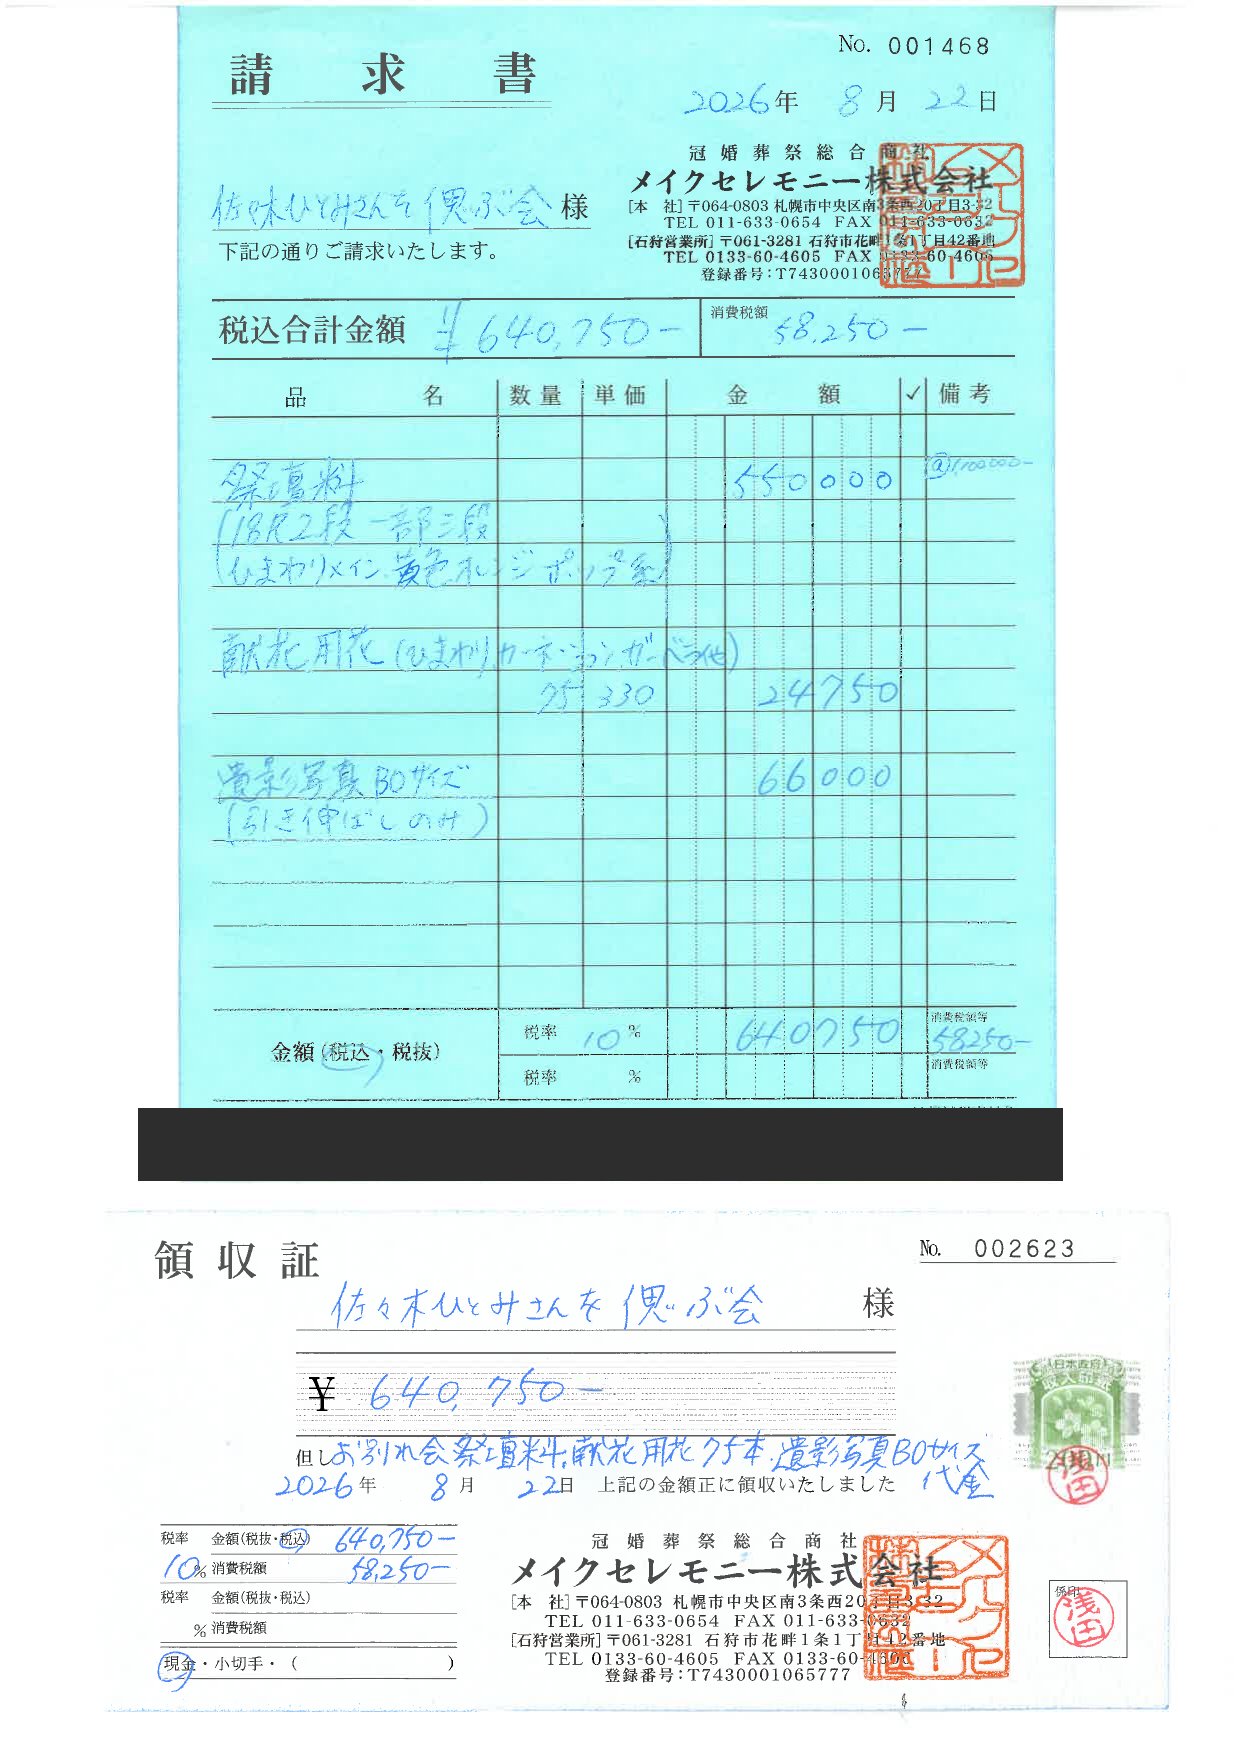 請求書
No. 001468
2026年 8月 22日
冠婚葬祭総合商社
メイクセレモニー株式会社
佐々木ひとみさんを偲ぶ会 様
[本 社]〒064-0803 札幌市中央区南3条西20丁目3-32
TEL 011-633-0654 FAX 011-633-0632
下記の通りご請求いたします。
[石狩営業所]〒061-3281 石狩市花畔1条1丁目42番地
TEL 0133-60-4605 FAX 0133-60-4606
登録番号:T7430001065777
税込合計金額 ¥640,750-
消費税額 58,250-
品名 数量 単価 金額 ✓ 備考
祭壇料 550000 @1,100,000-
(18尺2段 一部三段
ひまわりメイン 黄色オレンジ ポップ系)
献花用花(ひまわり、カーネーション ガーベラ他)
75 330 24750
遺影写真BOサイズ 66000
(引き伸ばしのみ)
金額(税込・税抜) 税率 10% 640750 消費税額等 58250-
税率 % 消費税額等
領収証
No. 002623
佐々木ひとみさんを偲ぶ会 様
¥ 640,750-
但し お別れ会祭壇料、献花用花75本、遺影写真BOサイズ
代金
2026年 8月 22日 上記の金額正に領収いたしました
日本政府
収入印紙
200YEN
浅田
税率 金額(税抜・税込) 640,750-
10% 消費税額 58,250-
税率 金額(税抜・税込)
% 消費税額
現金・小切手・( )
冠婚葬祭総合商社
メイクセレモニー株式会社
[本 社]〒064-0803 札幌市中央区南3条西20丁目3-32
TEL 011-633-0654 FAX 011-633-0632
[石狩営業所]〒061-3281 石狩市花畔1条1丁目42番地
TEL 0133-60-4605 FAX 0133-60-4606
登録番号:T7430001065777
係印
浅田